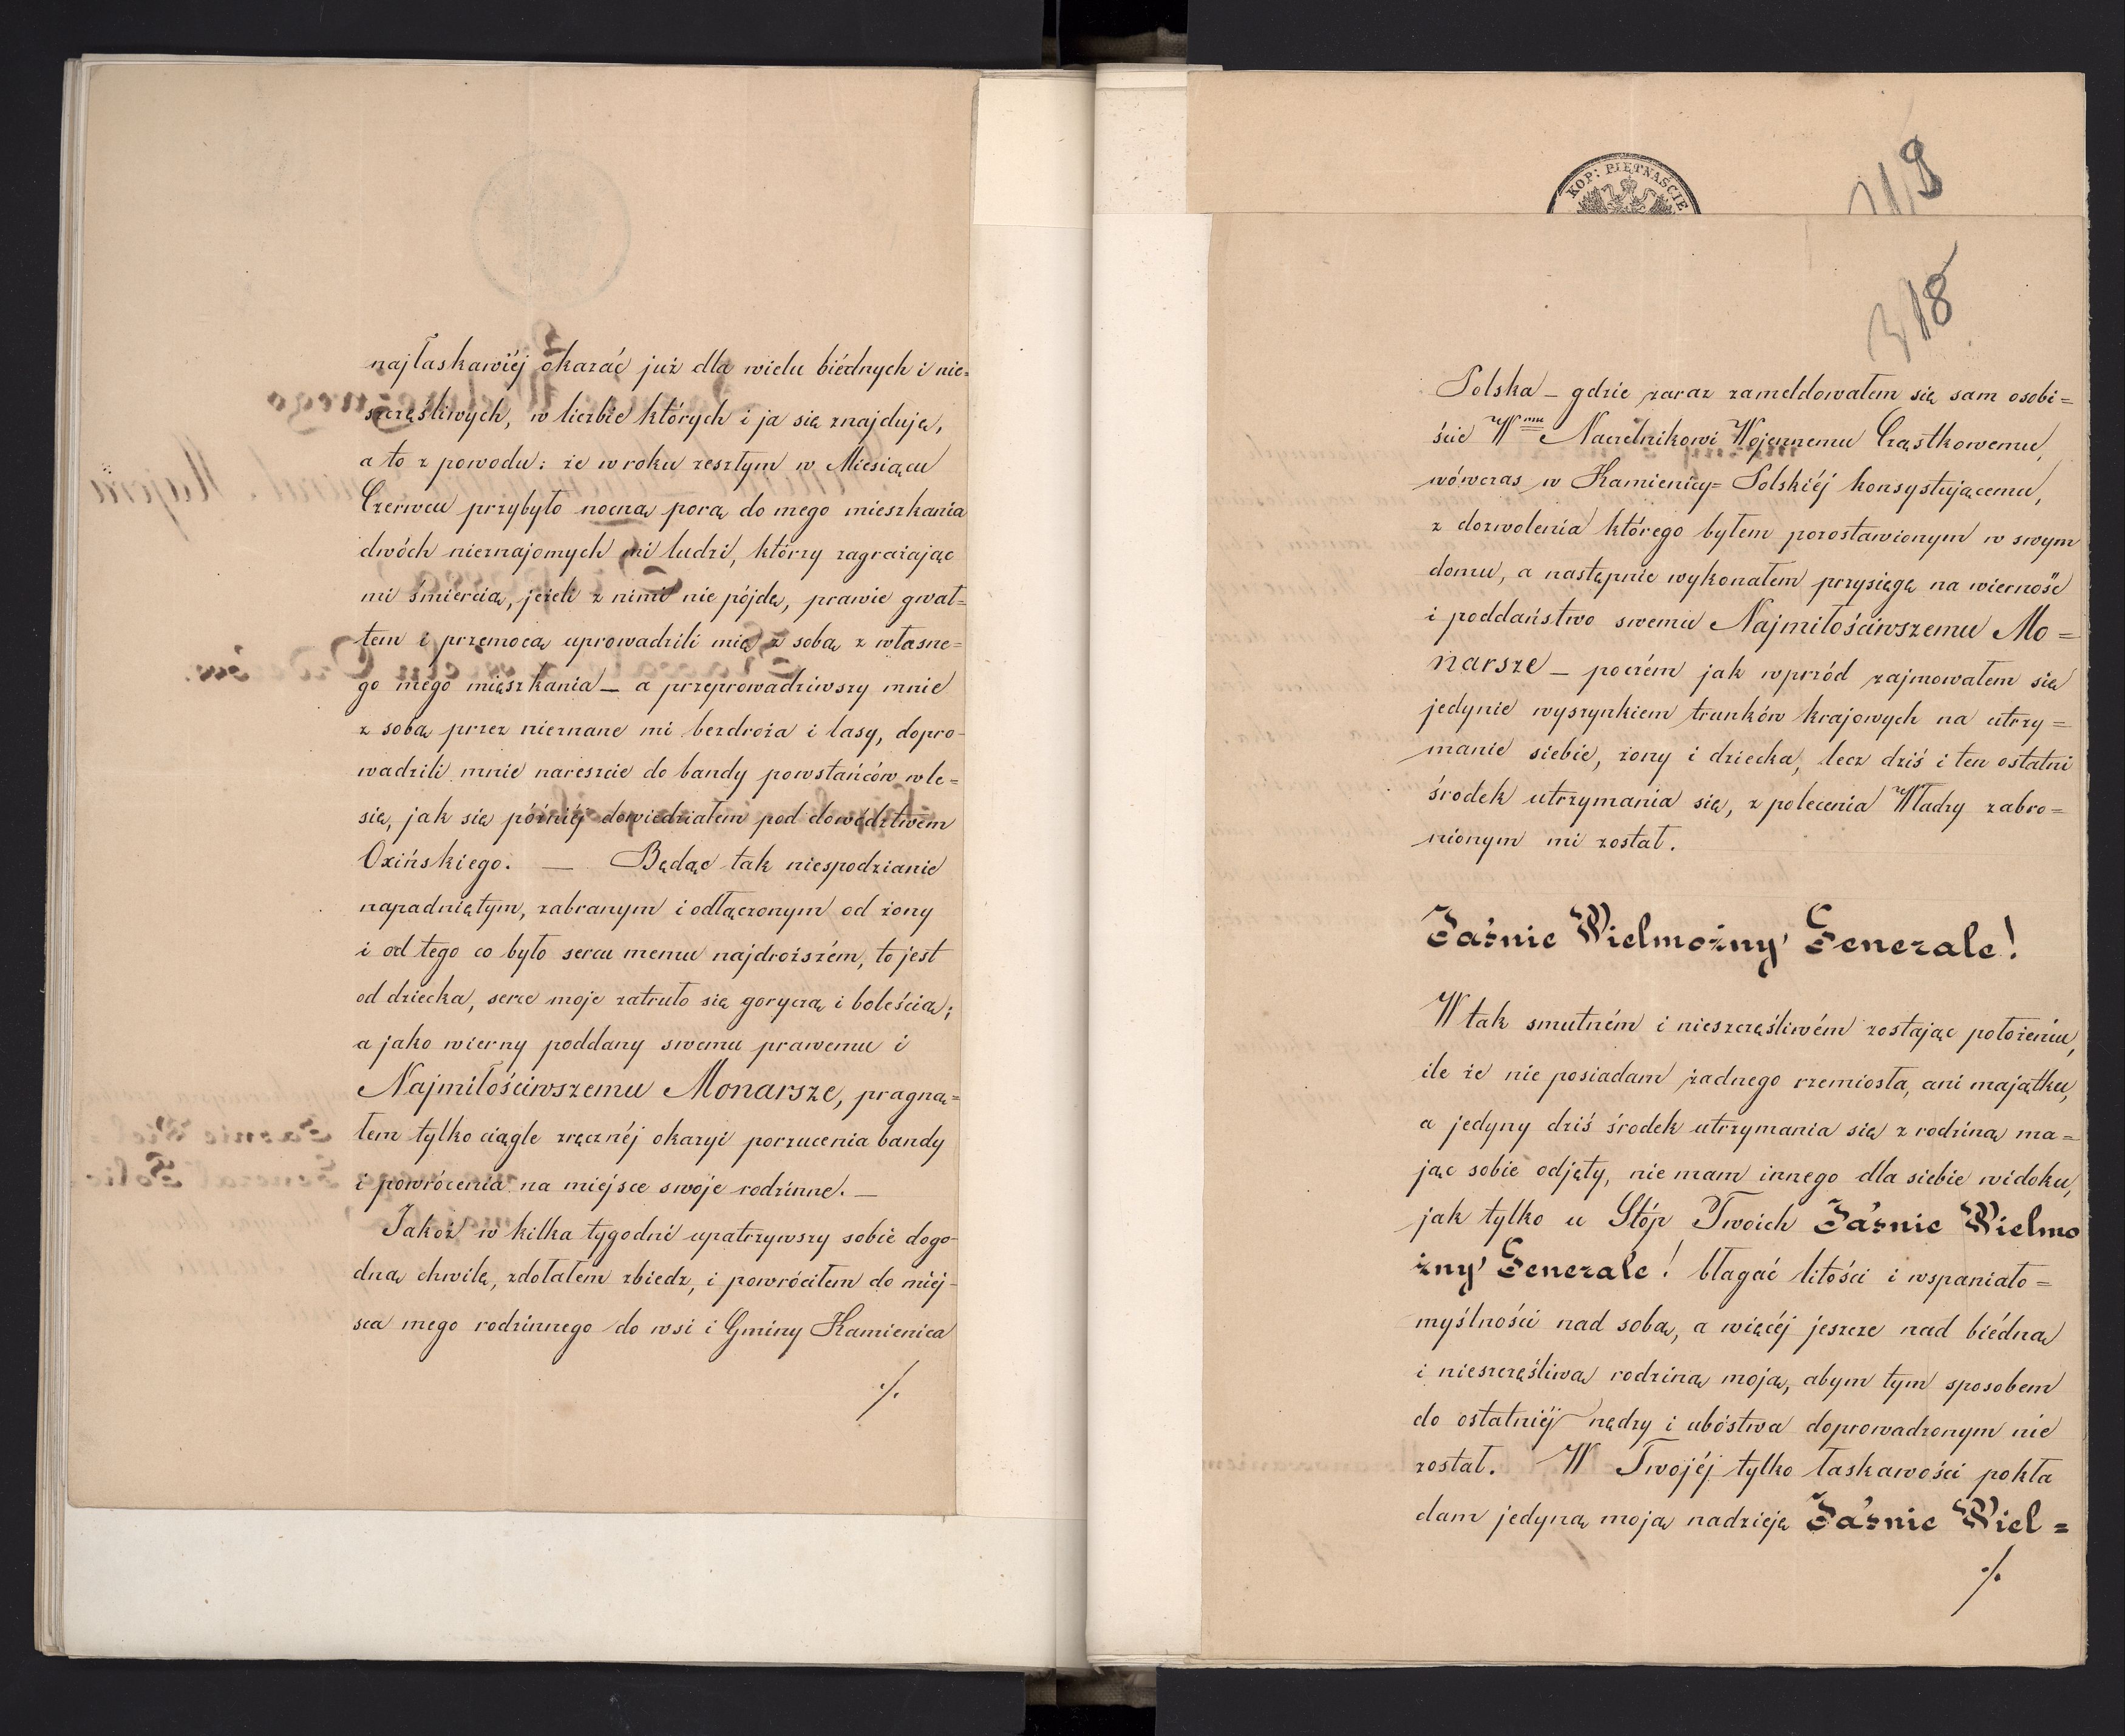 najłaskawiéj okazać już dla wielu biédnych i nie=
szczęśliwych, w liczbie których i ja się znajduję,
a to z powodu: że w roku zeszłym w Miesiącu
Czerwcu przybyło nocną porą do mego mieszkania
dwóch nieznajomych mi ludzi, którzy zagrażając
mi śmiercią, jeżeli z nimi nie pójdę, prawie gwał=
tem i przemocą uprowadzili mię z sobą z własne=
go mego mięszkania — a przeprowadziwszy mnie
z sobą przez nieznane mi bezdroża i lasy, dopro-
wadzili mnie nareszcie do bandy powstańców w le=
sie, jak się późniéj dowiedziałem pod dowództwem
Oxińskiego. — Będąc tak niespodzianie
napadniętym, zabranym i odłączonym od żony
i od tego co było sercu memu najdroższém, to jest
od dziecka, serce moje zatruło się goryczą i boleścią;
a jako wierny poddany swemu prawemu i
Najmiłościwszemu Monarsze, pragną=
łem tylko ciągle zręcznéj okazyi porzucenia bandy
i powrócenia na miejsce swoje rodzinne. —
Jakoż w kilka tygodni upatrzywszy sobie dogo-
dną chwilę, zdołałem zbiedz, i powróciłem do miej-
sca mego rodzinnego do wsi i Gminy Kamienica
./.
KOP: PIĘTNAŚCIE
319
318
Polska — gdzie zaraz zameldowałem się sam osobi=
ście Wmu Naczelnikowi Wojennemu Cząstkowemu,
wówczas w Kamienicy=Polskiéj konsystującemu,
z dozwolenia którego byłem pozostawionym w swym
domu, a następnie wykonałem przysięgę na wierność
i poddaństwo swemu Najmiłościwszemu Mo=
narsze — poczém jak wprzód zajmowałem się
jedynie wyszynkiem trunków krajowych na utrzy=
manie siebie, żony i dziecka, lecz dziś i ten ostatni
środek utrzymania się, z polecenia Władzy zabro=
nionym mi został.
Jaśnie Wielmożny Generale!
W tak smutném i nieszczęśliwém zostając położeniu,
ile że nie posiadam żadnego rzemiosła, ani majątku,
a jedyny dziś środek utrzymania się z rodziną ma=
jąc sobie odjęty, nie mam innego dla siebie widoku,
jak tylko u Stóp Twoich Jaśnie Wielmo
żny Generale! błagać litości i wspaniało=
myślności nad sobą, a więcéj jeszcze nad biédną
i nieszczęśliwą rodziną moją, abym tym sposobem
do ostatniéj nędzy i ubóstwa doprowadzonym nie
został. W Twojéj tylko łaskawości pokła
dam jedyną moją nadzieję Jaśnie Wiel=
./.